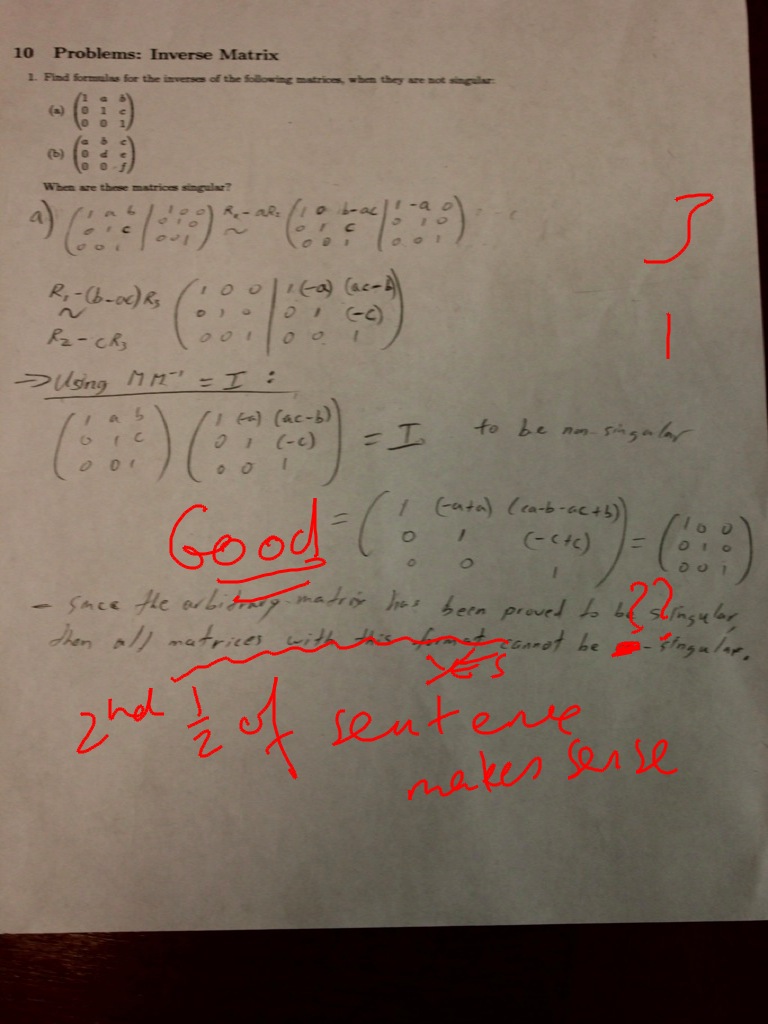 10 Problems: Inverse Matrix
1. Find formulas for the inverses of the following matrices, when they are not singular:
(a) (1 a b
0 1 c
0 0 1)
(b) (a b c
0 d e
0 0 f)
When are these matrices singular?
a) (1 a b | 1 0 0
0 1 c | 0 1 0
0 0 1 | 0 0 1) R₁-aR₂ ~ (1 0 b-ac | 1 -a 0
0 1 c | 0 1 0
0 0 1 | 0 0 1)
3
R₁-(b-ac)R₃ ~ R₂-cR₃ (1 0 0 | 1 (-a) (ac-b)
0 1 0 | 0 1 (-c)
0 0 1 | 0 0 1)
1
→ Using MM⁻¹ = I :
(1 a b
0 1 c
0 0 1) (1 (-a) (ac-b)
0 1 (-c)
0 0 1) = I to be non-singular
Good
= (1 (-a+a) (ca-b-ac+b)
0 1 (-c+c)
0 0 1) = (1 0 0
0 1 0
0 0 1)
??
- Since the arbitrary matrix has been proved to be singular,
then all matrices with this format cannot be - singular.
YES
2nd 1/2 of sentence
makes sense